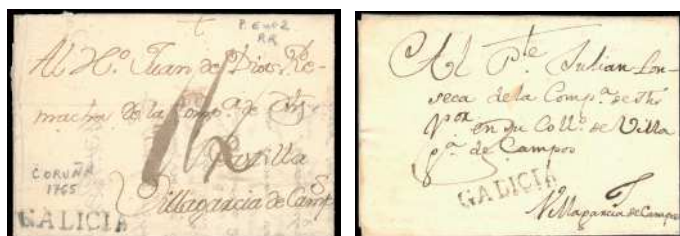 P. E nº2
RR
Al Hº Juan de Dios Re-
macha de la Comp.ª de Jhs
Castilla
CORUÑA
1765
Villagarcia de Camp
GALICIA
Al Pte Julian Fon-
seca de la Compª. de Jhs
Por en su Collº. de Villa
gª de Campos
GALICIA
Villagarcia de Campos